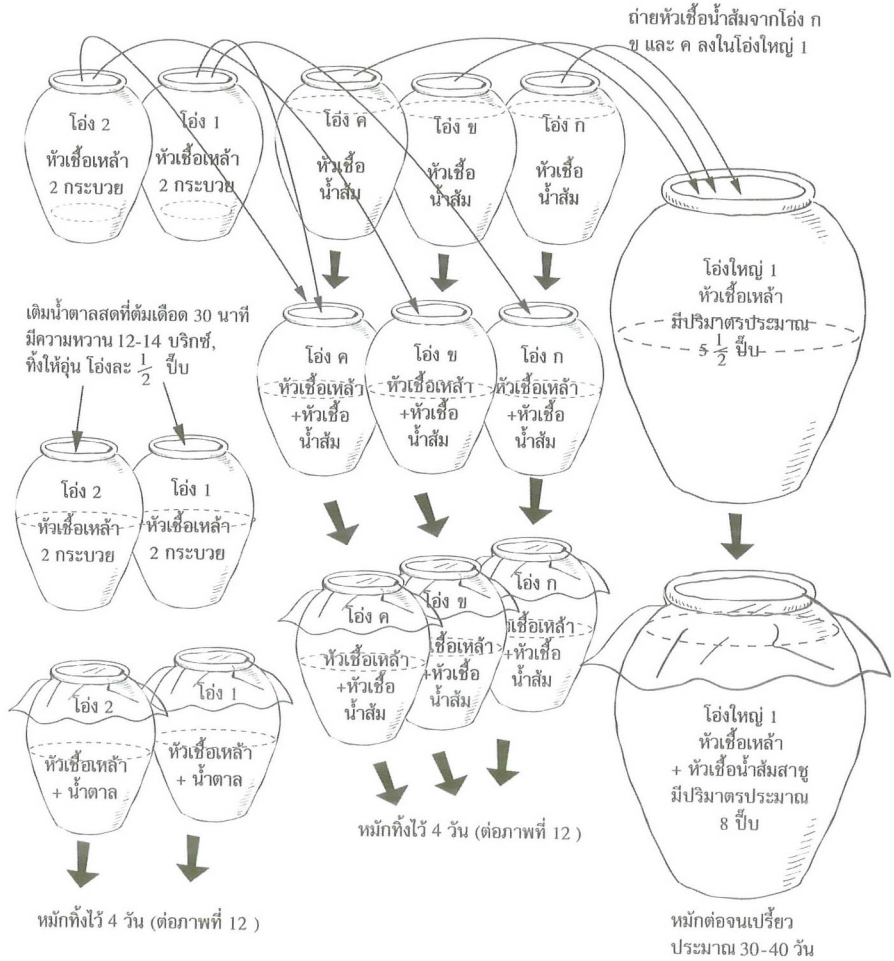 ถ่ายหัวเชื้อน้ำส้มจากโอ่ง ก
ข และ ค ลงในโอ่งใหญ่ 1
โอ่ง 2
หัวเชื้อเหล้า
2 กระบวย
โอ่ง 1
หัวเชื้อเหล้า
2 กระบวย
โอ่ง ค
หัวเชื้อ
น้ำส้ม
โอ่ง ข
หัวเชื้อ
น้ำส้ม
โอ่ง ก
หัวเชื้อ
น้ำส้ม
โอ่งใหญ่ 1
หัวเชื้อเหล้า
มีปริมาตรประมาณ
5 1/2 ปี๊บ
เติมน้ำตาลสดที่ต้มเดือด 30 นาที
มีความหวาน 12-14 บริกซ์,
ทิ้งให้อุ่น โอ่งละ 1/2 ปี๊บ
โอ่ง ค
หัวเชื้อเหล้า
+หัวเชื้อ
น้ำส้ม
โอ่ง ข
หัวเชื้อเหล้า
+หัวเชื้อ
น้ำส้ม
โอ่ง ก
หัวเชื้อเหล้า
+หัวเชื้อ
น้ำส้ม
โอ่ง 2
หัวเชื้อเหล้า
2 กระบวย
โอ่ง 1
หัวเชื้อเหล้า
2 กระบวย
โอ่ง ค
หัวเชื้อเหล้า
+หัวเชื้อ
น้ำส้ม
โอ่ง ข
เชื้อเหล้า
+หัวเชื้อ
น้ำส้ม
โอ่ง ก
เชื้อเหล้า
+หัวเชื้อ
น้ำส้ม
โอ่ง 2
หัวเชื้อเหล้า
+ น้ำตาล
โอ่ง 1
หัวเชื้อเหล้า
+ น้ำตาล
โอ่งใหญ่ 1
หัวเชื้อเหล้า
+ หัวเชื้อน้ำส้มสาชู
มีปริมาตรประมาณ
8 ปี๊บ
หมักทิ้งไว้ 4 วัน (ต่อภาพที่ 12 )
หมักทิ้งไว้ 4 วัน (ต่อภาพที่ 12 )
หมักต่อจนเปรี้ยว
ประมาณ 30-40 วัน